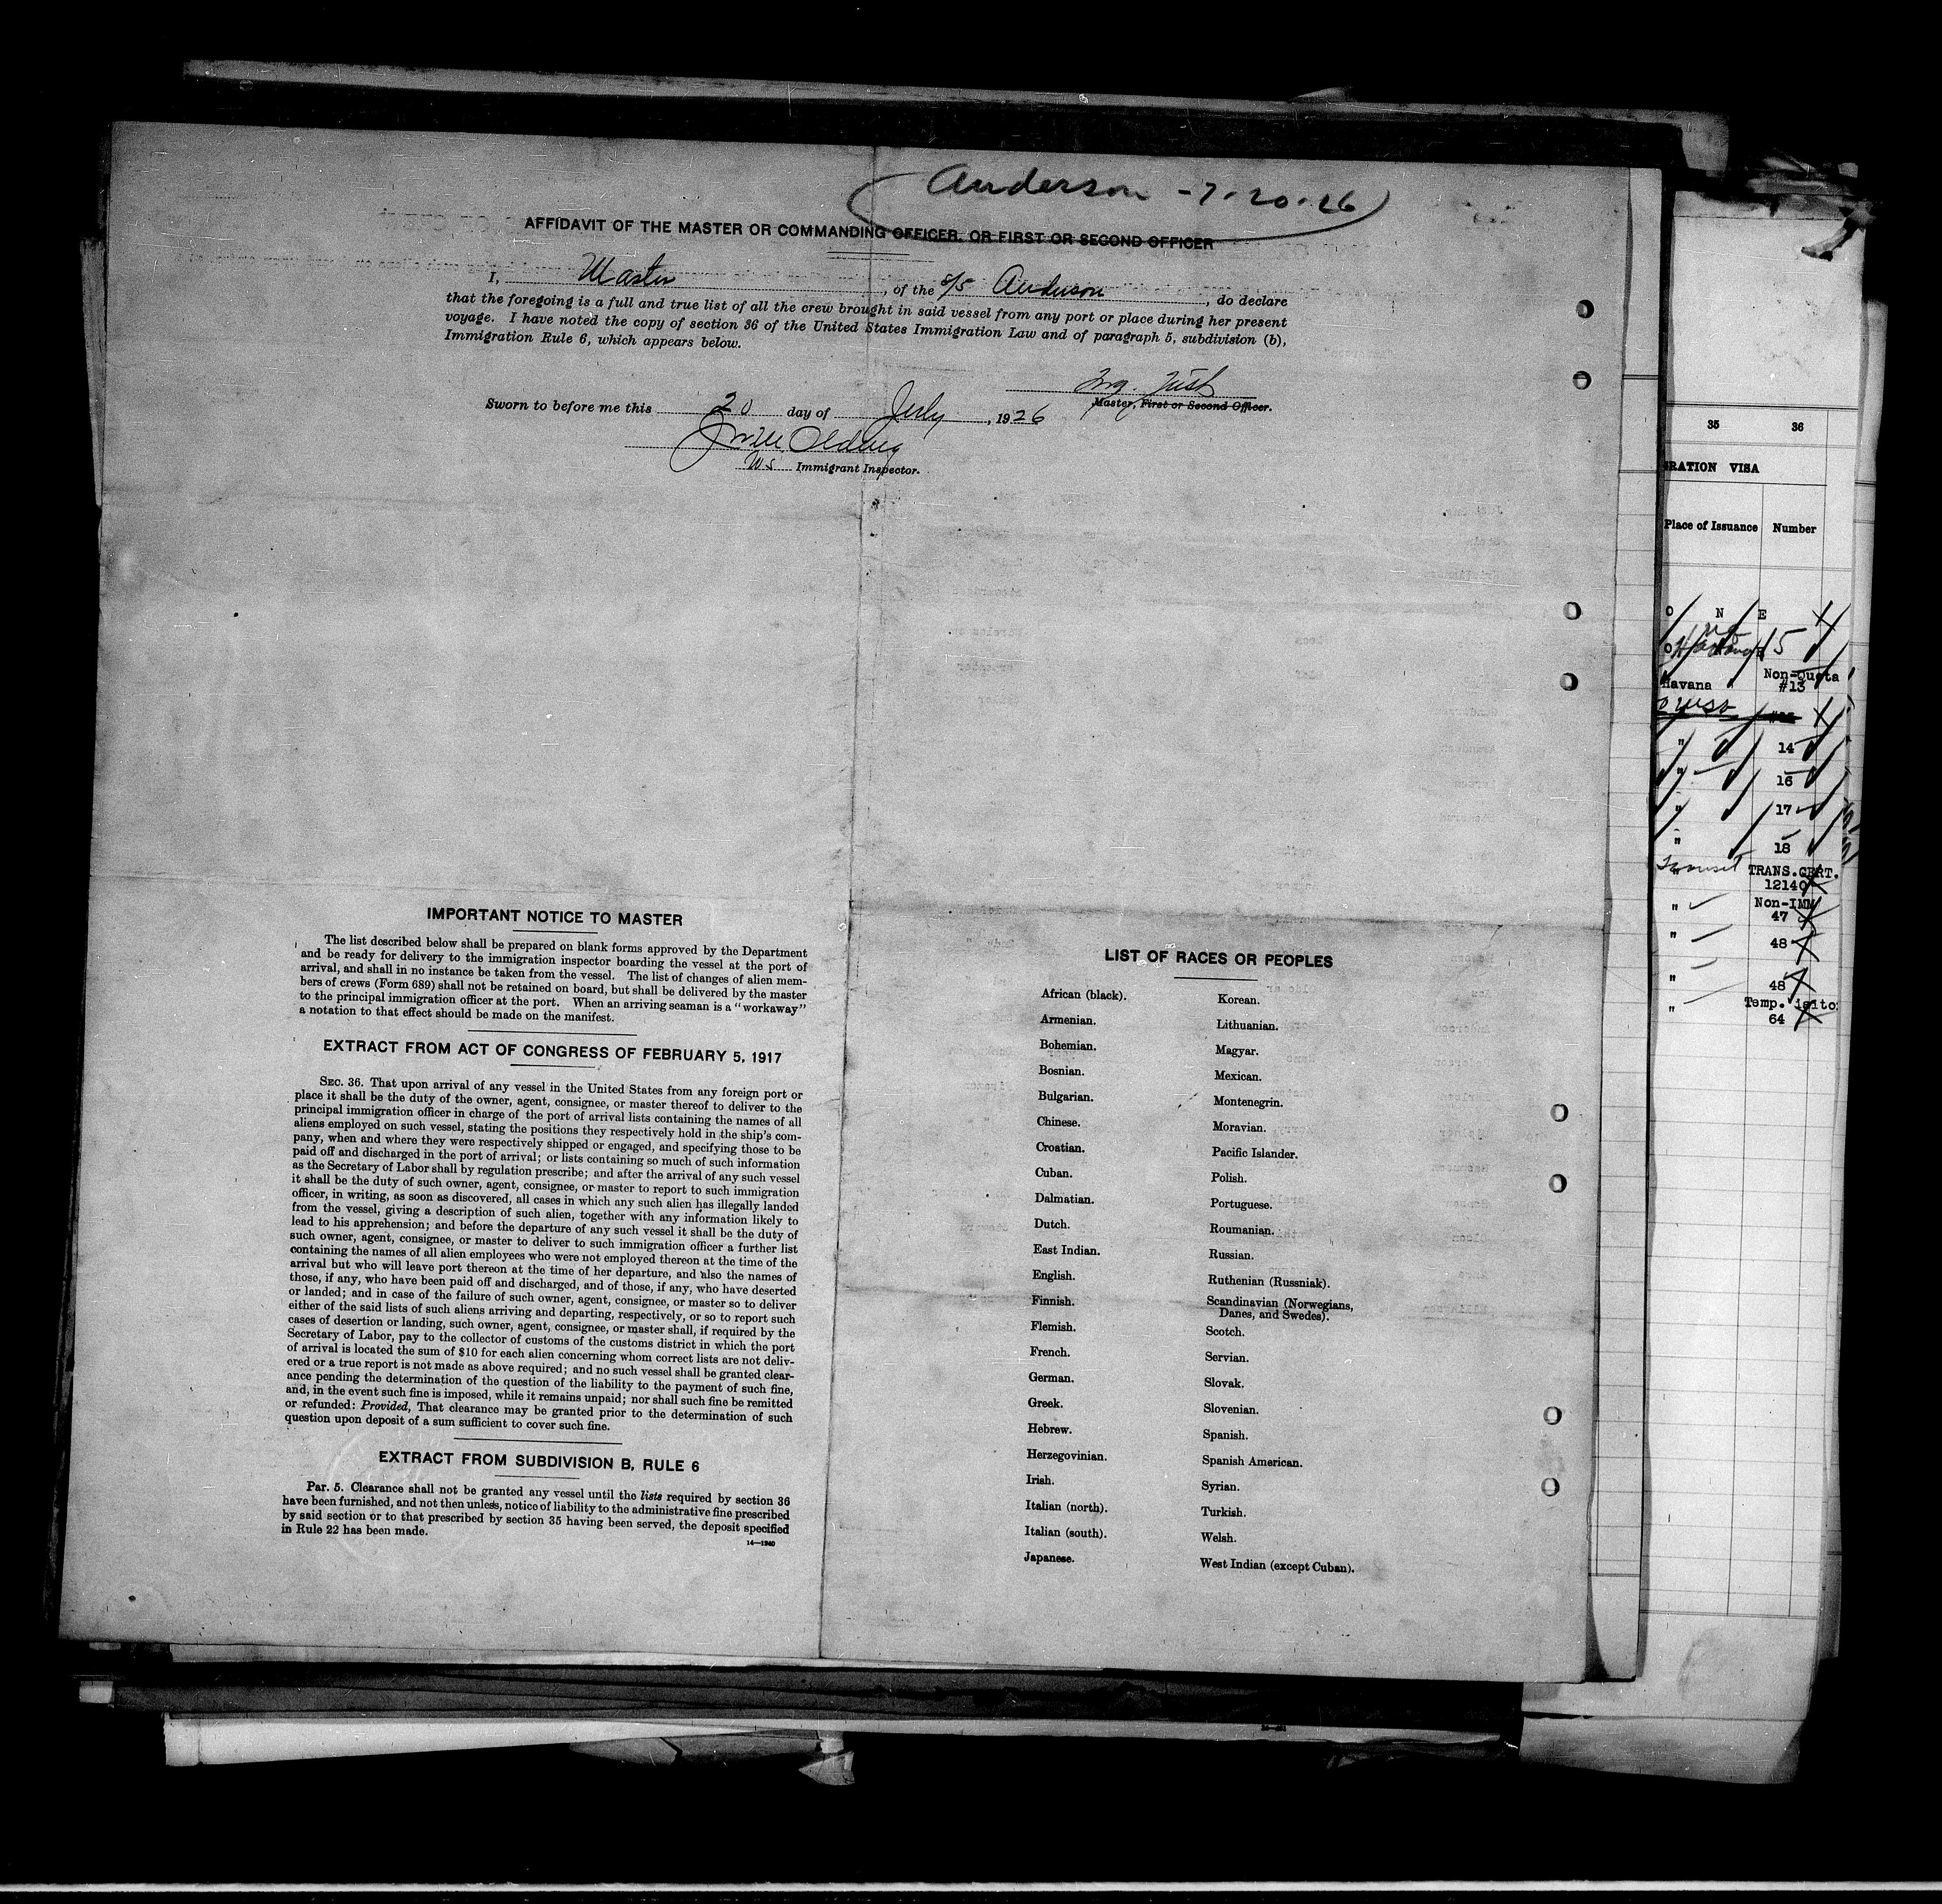 Anderson - 7-20-26
AFFIDAVIT OF THE MASTER OR COMMANDING OFFICER, OR FIRST OR SECOND OFFICER
I, Master, of the S/S Anderson, do declare
that the foregoing is a full and true list of all the crew brought in said vessel from any port or place during her present
voyage. I have noted the copy of section 36 of the United States Immigration Law and of paragraph 5, subdivision (b),
Immigration Rule 6, which appears below.
Master, First or Second Officer.
Sworn to before me this 20 day of July, 1926
Immigrant Inspector.
IMPORTANT NOTICE TO MASTER
The list described below shall be prepared on blank forms approved by the Department
and be ready for delivery to the immigration inspector boarding the vessel at the port of
arrival, and shall in no instance be taken from the vessel. The list of changes of alien mem-
bers of crews (Form 689) shall not be retained on board, but shall be delivered by the master
to the principal immigration officer at the port. When an arriving seaman is a "workaway"
a notation to that effect should be made on the manifest.
EXTRACT FROM ACT OF CONGRESS OF FEBRUARY 5, 1917
SEC. 36. That upon arrival of any vessel in the United States from any foreign port or
place it shall be the duty of the owner, agent, consignee, or master thereof to deliver to the
principal immigration officer in charge of the port of arrival lists containing the names of all
aliens employed on such vessel, stating the positions they respectively hold in the ship's com-
pany, when and where they were respectively shipped or engaged, and specifying those to be
paid off and discharged in the port of arrival; or lists containing so much of such information
as the Secretary of Labor shall by regulation prescribe; and after the arrival of any such vessel
it shall be the duty of such owner, agent, consignee, or master to report to such immigration
officer, in writing, as soon as discovered, all cases in which any such alien has illegally landed
from the vessel, giving a description of such alien, together with any information likely to
lead to his apprehension; and before the departure of any such vessel it shall be the duty of
such owner, agent, consignee, or master to deliver to such immigration officer a further list
containing the names of all alien employees who were not employed thereon at the time of the
arrival but who will leave port thereon at the time of her departure, and also the names of
those, if any, who have been paid off and discharged, and of those, if any, who have deserted
or landed; and in case of the failure of such owner, agent, consignee, or master so to deliver
either of the said lists of such aliens arriving and departing, respectively, or so to report such
cases of desertion or landing, such owner, agent, consignee, or master shall, if required by the
Secretary of Labor, pay to the collector of customs of the customs district in which the port
of arrival is located the sum of $10 for each alien concerning whom correct lists are not deliv-
ered or a true report is not made as above required; and no such vessel shall be granted clear-
ance pending the determination of the question of the liability to the payment of such fine,
and, in the event such fine is imposed, while it remains unpaid; nor shall such fine be remitted
or refunded: Provided, That clearance may be granted prior to the determination of such
question upon deposit of a sum sufficient to cover such fine.
EXTRACT FROM SUBDIVISION B, RULE 6
Par. 5. Clearance shall not be granted any vessel until the lists required by section 36
have been furnished, and not then unless, notice of liability to the administrative fine prescribed
by said section or to that prescribed by section 35 having been served, the deposit specified
in Rule 22 has been made.
14—1240
LIST OF RACES OR PEOPLES
African (black).
Armenian.
Bohemian.
Bosnian.
Bulgarian.
Chinese.
Croatian.
Cuban.
Dalmatian.
Dutch.
East Indian.
English.
Finnish.
Flemish.
French.
German.
Greek.
Hebrew.
Herzegovinian.
Irish.
Italian (north).
Italian (south).
Japanese.
Korean.
Lithuanian.
Magyar.
Mexican.
Montenegrin.
Moravian.
Pacific Islander.
Polish.
Portuguese.
Roumanian.
Russian.
Ruthenian (Russniak).
Scandinavian (Norwegians,
Danes, and Swedes).
Scotch.
Servian.
Slovak.
Slovenian.
Spanish.
Spanish American.
Syrian.
Turkish.
Welsh.
West Indian (except Cuban).
35 36
RATION VISA
Place of Issuance Number
O N E
15
Havana Non-Quota
#13
" 14
" 16
" 17
" 18
" TRANS.CERT.
12140
" Non-IMM
47
" 48
" 48
" Temp.
64